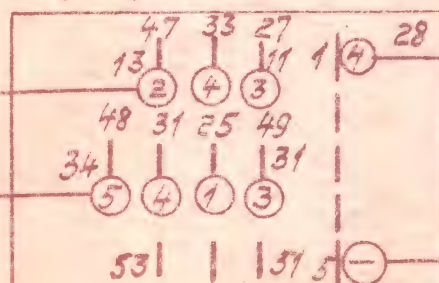 47 33 27 28
13 11 1
2 4 3 4
48 31 25 49
34 31
5 4 1 3
53 31 5